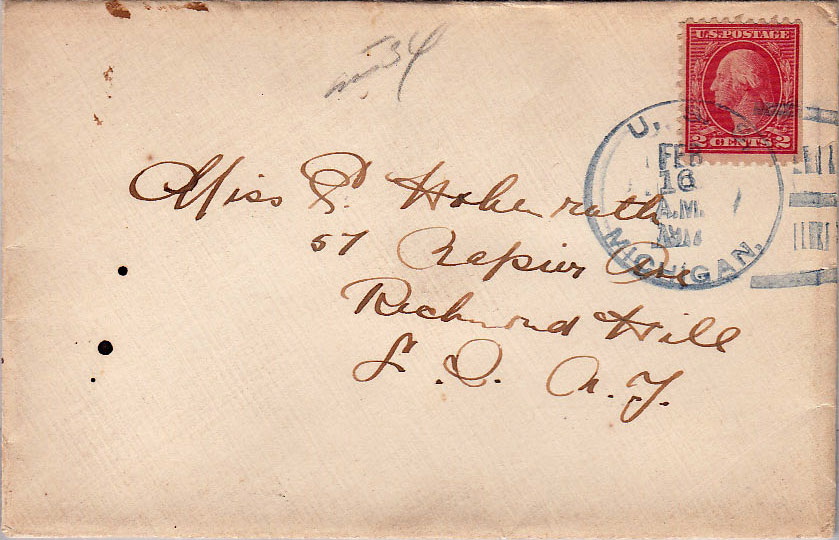 34
U.S. POSTAGE
2 CENTS 2
U.
FEB
16
A.M.
MICHIGAN.
Miss P. Hohenrath
57 Napier Ave
Richmond Hill
L. I. N.Y.